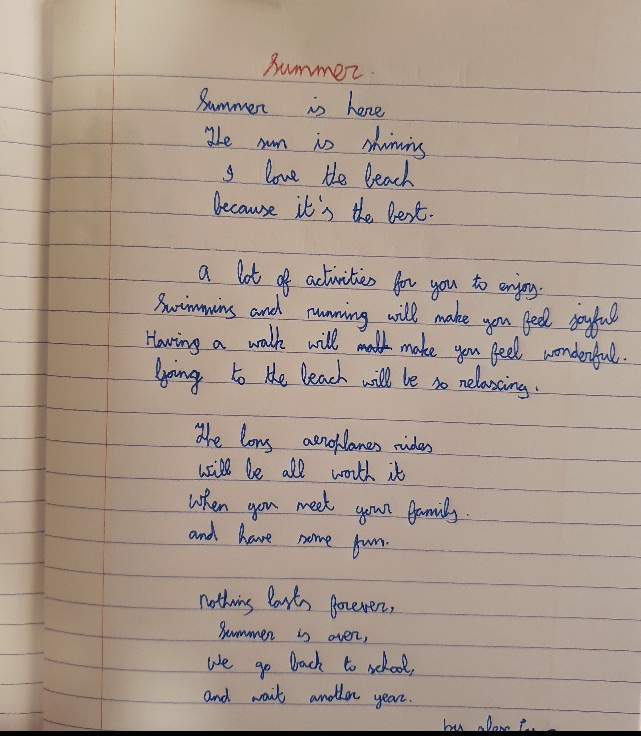 Summer.
Summer is here
The sun is shining
I love the beach
because it's the best.
A lot of activities for you to enjoy.
Swimming and running will make you feel joyful
Having a walk will make you feel wonderful.
Going to the beach will be so relaxing.
The long aeroplanes rides
will be all worth it
when you meet your family.
and have some fun.
Nothing lasts forever,
Summer is over,
We go back to school,
and wait another year.
by